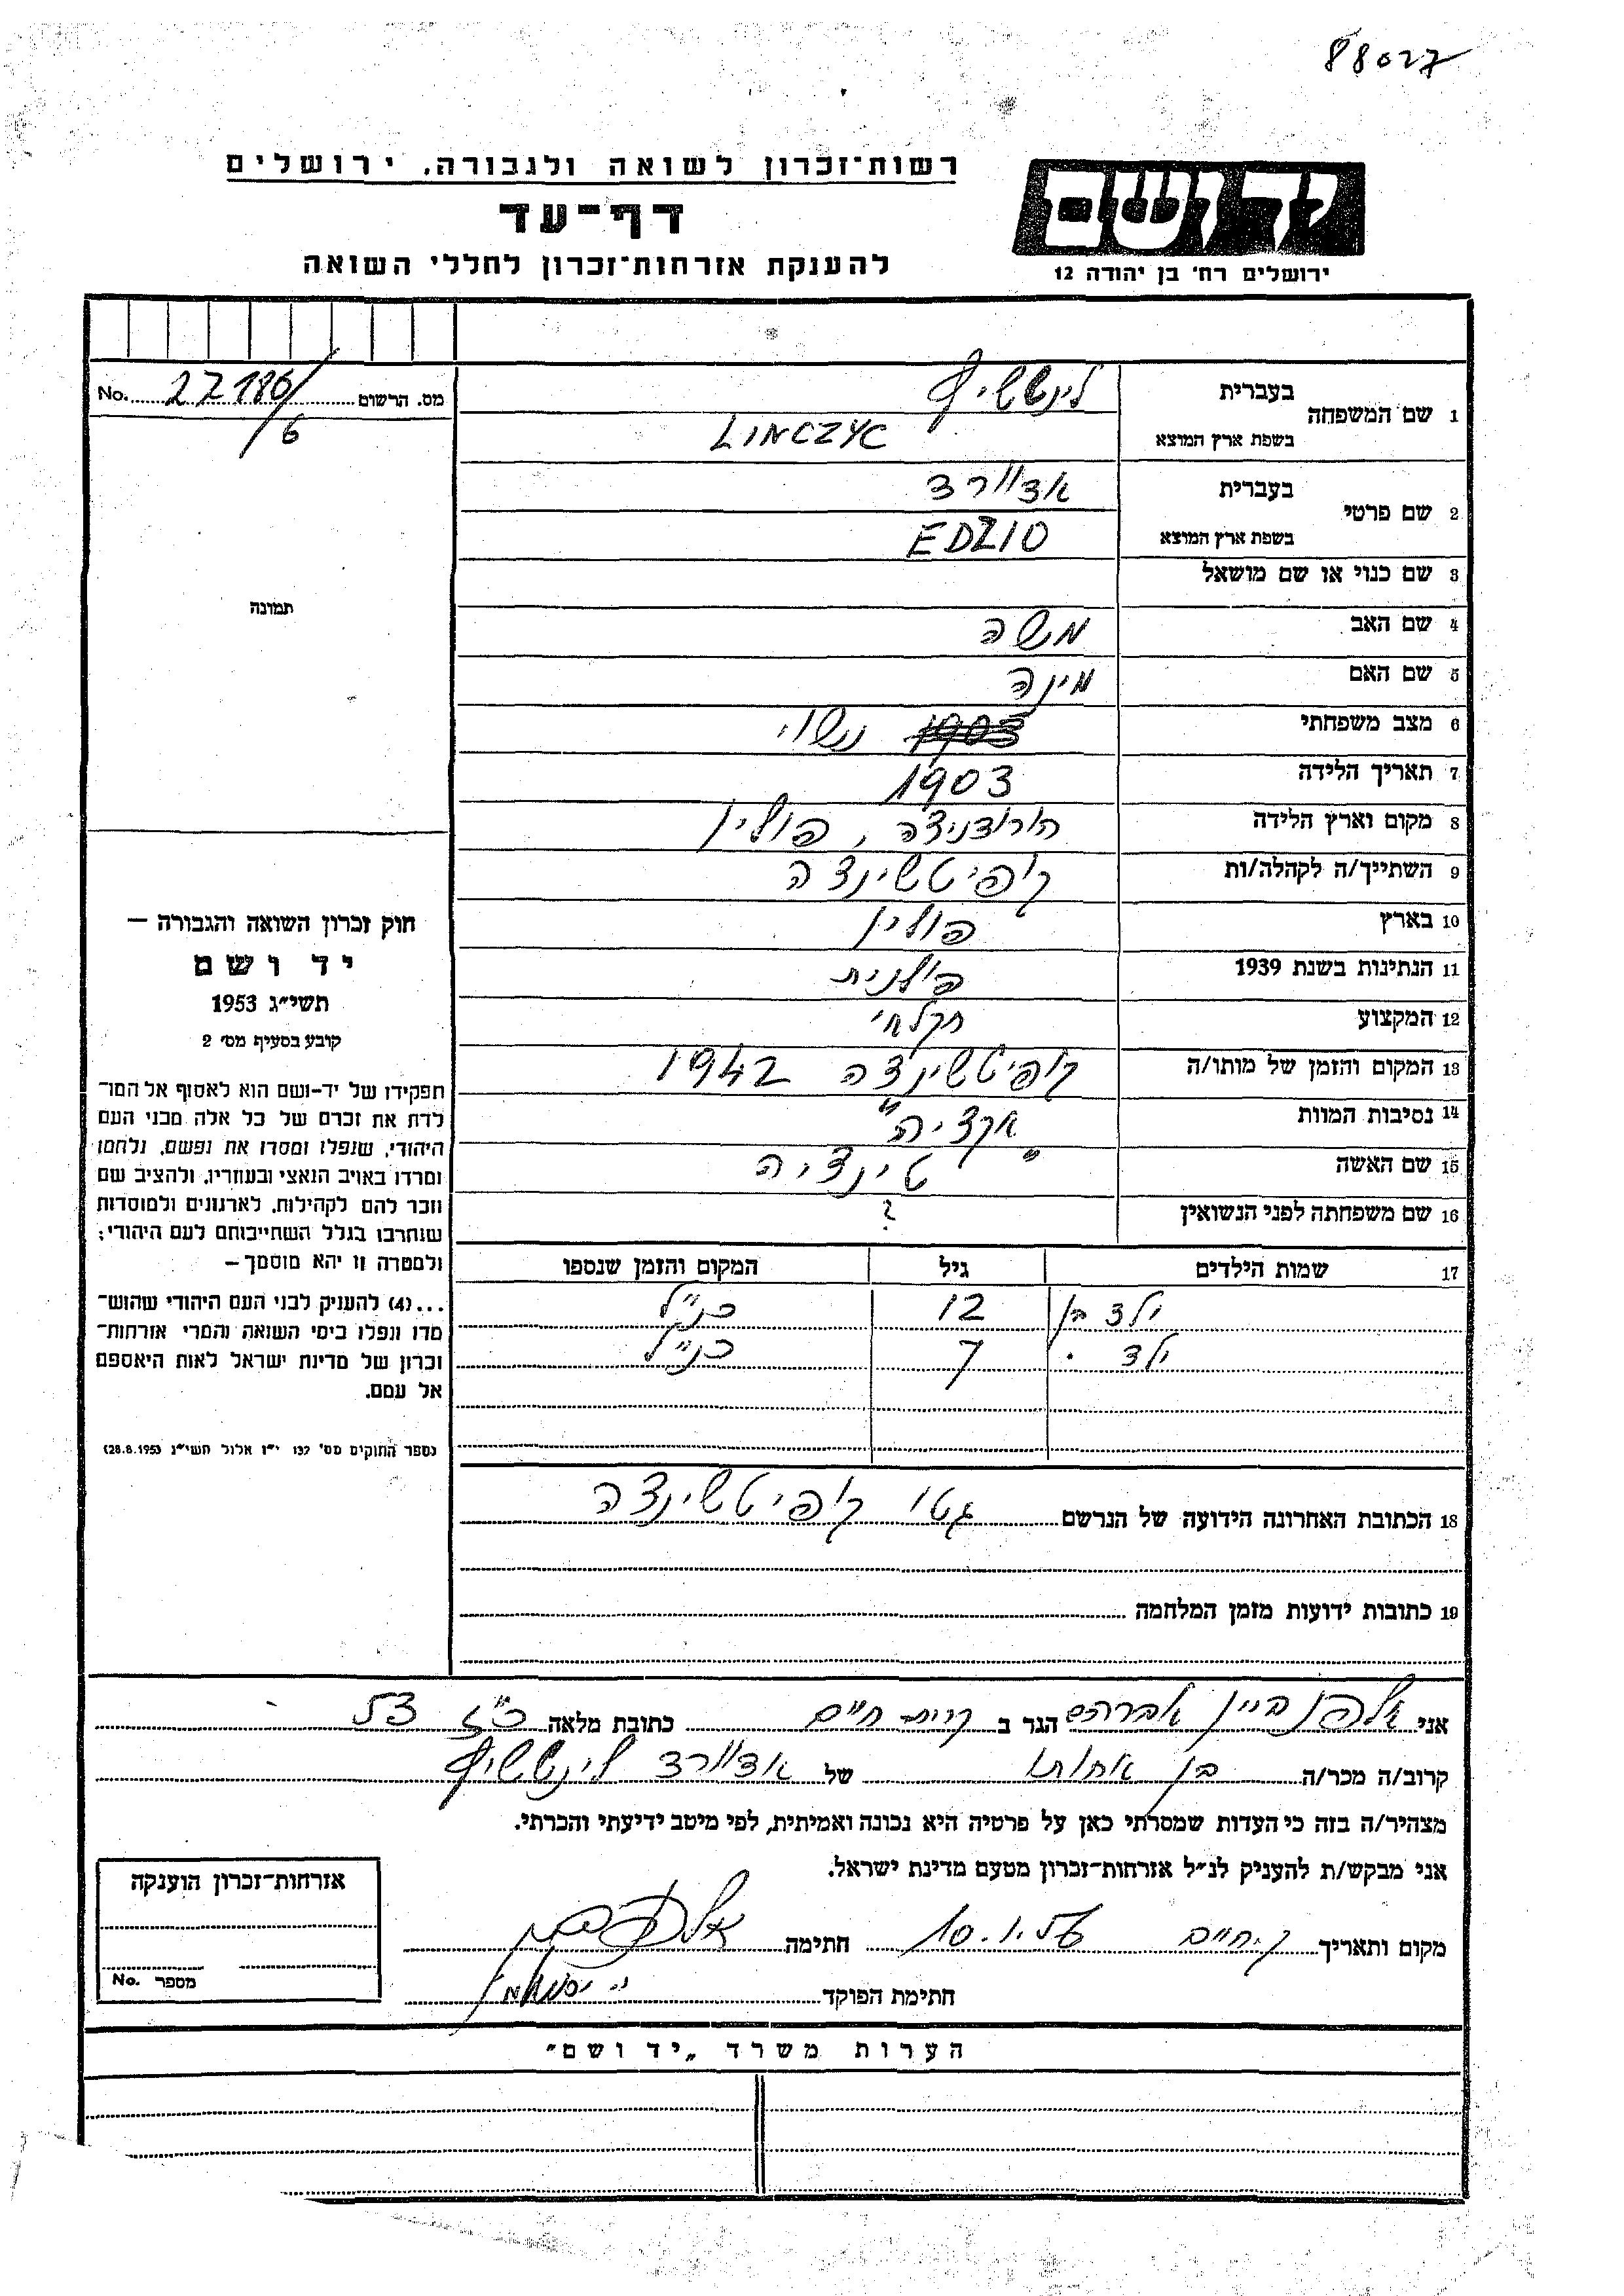 88027
רשות־זכרון לשואה ולגבורה, ירושלים
דף־עד
להענקת אזרחות־זכרון לחללי השואה
יד ושם
ירושלים רח' בן יהודה 12
מס. הרשום 22186/6 No.
1 שם המשפחה בעברית לינטשיץ
בשפת ארץ המוצא LINCZYC
2 שם פרטי בעברית אדוורד
בשפת ארץ המוצא EDZIO
3 שם כנוי או שם מושאל
4 שם האב משה
5 שם האם מינה
6 מצב משפחתי 1903 נשוי
7 תאריך הלידה 1903
8 מקום וארץ הלידה הורודניצה, פולין
9 השתייך/ה לקהלה/ות קופיטשינצה
10 בארץ פולין
11 הנתינות בשנת 1939 פולנית
12 המקצוע חקלאי
13 המקום והזמן של מותו/ה קופיטשינצה 1942
14 נסיבות המוות "אקציה"
15 שם האשה טינציה
16 שם משפחתה לפני הנשואין ?
17 שמות הילדים גיל המקום והזמן שנספו
ילד בן 12 כנ"ל
ילד " 7 כנ"ל
18 הכתובת האחרונה הידועה של הנרשם גטו קופיטשינצה
19 כתובות ידועות מזמן המלחמה
תמונה
חוק זכרון השואה והגבורה –
יד ושם
תשי"ג 1953
קובע בסעיף מס' 2
תפקידו של יד-ושם הוא לאסוף אל המו־
לדת את זכרם של כל אלה מבני העם
היהודי, שנפלו ומסרו את נפשם, נלחמו
ומרדו באויב הנאצי ובעוזריו, ולהציב שם
וזכר להם לקהילות, לארגונים ולמוסדות
שנחרבו בגלל השתייכותם לעם היהודי;
ולמטרה זו יהא מוסמך –
...(4) להעניק לבני העם היהודי שהוש־
מדו ונפלו בימי השואה והמרי אזרחות־
זכרון של מדינת ישראל לאות היאספם
אל עמם.
(ספר החוקים מס' 132 י"ז אלול תשי"ג 28.8.1953)
אני אלפנביין אברהם הגר ב קרית חיים כתובת מלאה כ"ג 53
קרוב/ה מכר/ה בן אחותו של אדוורד לינטשיץ
מצהיר/ה בזה כי העדות שמסרתי כאן על פרטיה היא נכונה ואמיתית, לפי מיטב ידיעתי והכרתי.
אני מבקש/ת להעניק לנ"ל אזרחות־זכרון מטעם מדינת ישראל.
מקום ותאריך ק. חיים 10.1.56 חתימה
חתימת הפוקד
אזרחות־זכרון הוענקה
מספר No.
הערות משרד „יד ושם"